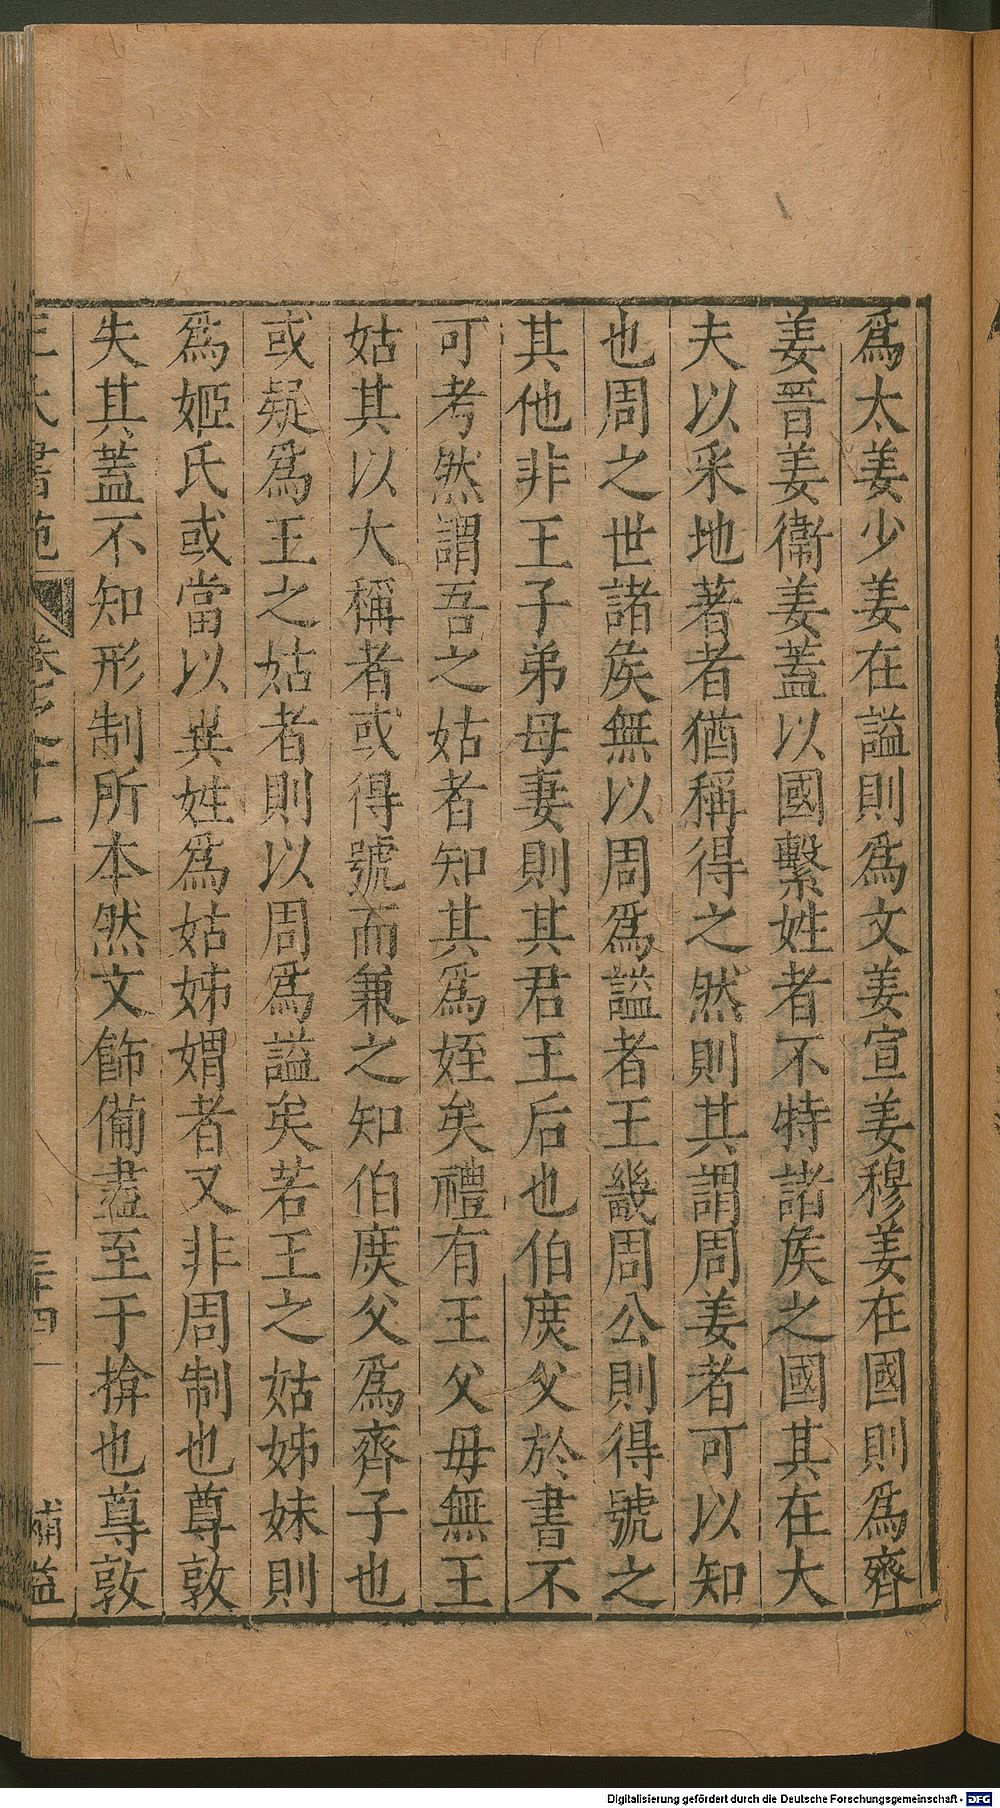 爲太姜少姜在謚則爲文姜宣姜穆姜在國則爲齊
姜晉姜衞姜蓋以國繫姓者不特諸矦之國其在大
夫以采地著者猶稱得之然則其謂周姜者可以知
也周之世諸矦無以周爲謚者王畿周公則得號之
其他非王子弟母妻則其君王后也伯庻父於書不
可考然謂吾之姑者知其爲姪矣禮有王父母無王
姑其以大稱者或得號而兼之知伯庻父爲齊子也
或疑爲王之姑者則以周爲謚矣若王之姑姊妹則
爲姬氏或當以異姓爲姑姊媦者又非周制也尊敦
失其蓋不知形制所本然文飾備盡至于揜也尊敦
王氏書苑 卷之十一 三十四 補益
Digitalisierung gefördert durch die Deutsche Forschungsgemeinschaft - DFG